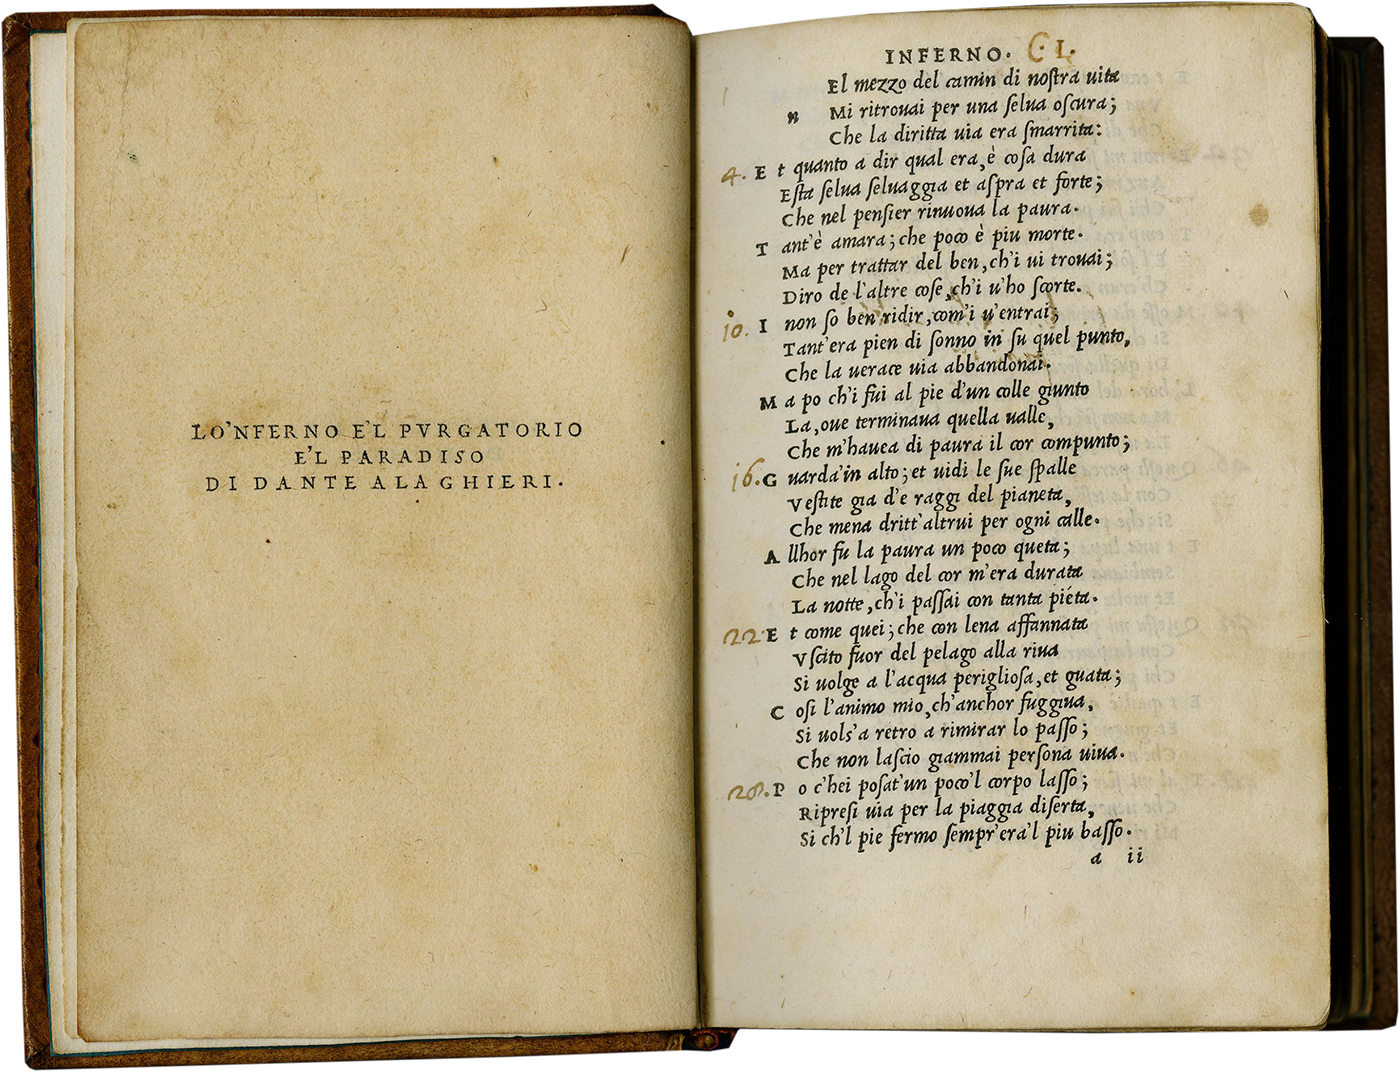 LO'NFERNO E'L PVRGATORIO
E'L PARADISO
DI DANTE ALAGHIERI.
INFERNO. C. I.
n El mezzo del camin di nostra uita
Mi ritrouai per una selua oscura;
Che la diritta uia era smarrita:
4. E t quanto a dir qual era, è cosa dura
Esta selua seluaggia et aspra et forte;
Che nel pensier rinuoua la paura.
T ant'è amara; che poco è piu morte.
Ma per trattar del ben, ch'i ui trouai;
Diro de l'altre cose, ch'i u'ho scorte.
10. I non so ben ridir, com'i u'entrai;
Tant'era pien di sonno in su quel punto,
Che la uerace uia abbandonai.
M a po ch'i fui al pie d'un colle giunto
La, oue terminaua quella ualle,
Che m'hauea di paura il cor compunto;
16. G uarda'in alto; et uidi le sue spalle
Vestite gia d'e raggi del pianeta,
Che mena dritt'altrui per ogni calle.
A llhor fu la paura un poco queta;
Che nel lago del cor m'era durata
La notte, ch'i passai con tanta piéta.
22. E t come quei; che con lena affannata
Vscito fuor del pelago alla riua
Si uolge a l'acqua perigliosa, et guata;
C osi l'animo mio, ch'anchor fuggiua,
Si uols'a retro a rimirar lo passo;
Che non lascio giammai persona uiua.
28. P o c'hei posat'un poco'l corpo lasso;
Ripresi uia per la piaggia diserta,
Si ch'l pie fermo sempr'era'l piu basso.
a ii